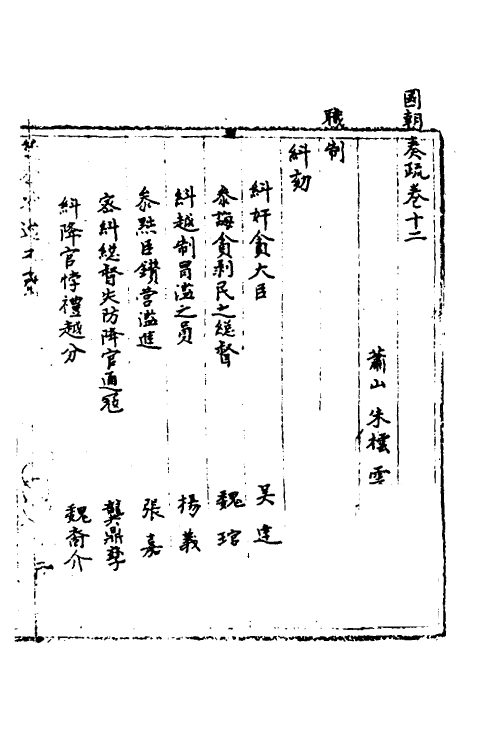 國朝奏疏卷十二
蕭山 朱橒 雲
職制
糾劾
糾奸貪大臣 吴達
叅誨貪剥民之總督 魏琯
糾越制冒濫之員 楊義
叅㸃臣鑽营濫進 張嘉
密糾總督失防降官通冠 龔鼎孳
糾降官悖禮越分 魏裔介